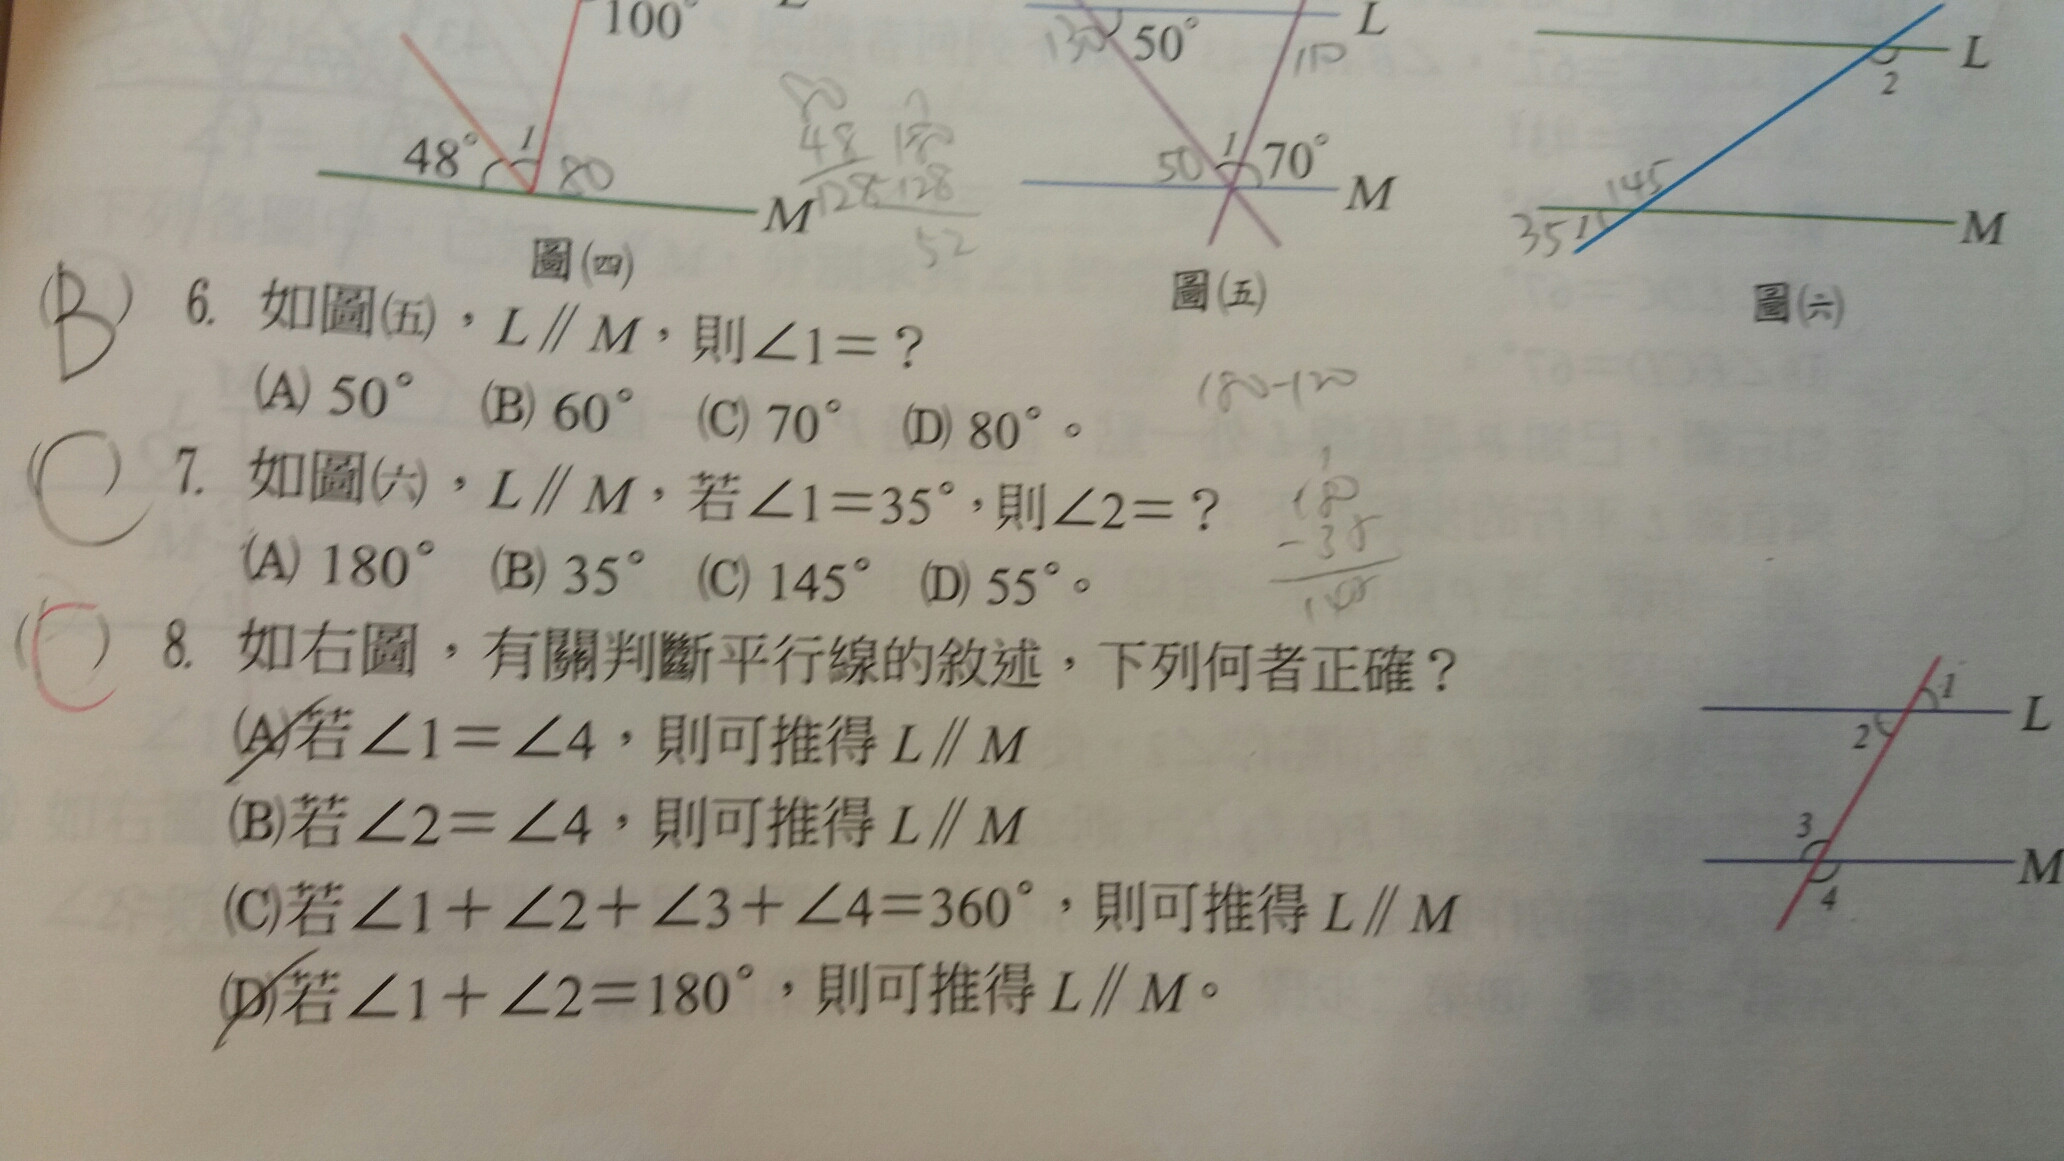 100°
L
130 50° 110
L
2
48° 1 80
M
80
48
128
180
128
52
50 1 70°
M
145
35 1
M
圖(四)
圖(五)
圖(六)
(B) 6. 如圖(五)，L∥M，則∠1=？
(A) 50° (B) 60° (C) 70° (D) 80°。
180-120
(C) 7. 如圖(六)，L∥M，若∠1=35°，則∠2=？
(A) 180° (B) 35° (C) 145° (D) 55°。
180
-35
145
(C) 8. 如右圖，有關判斷平行線的敘述，下列何者正確？
(A)若∠1=∠4，則可推得L∥M
(B)若∠2=∠4，則可推得L∥M
(C)若∠1+∠2+∠3+∠4=360°，則可推得L∥M
(D)若∠1+∠2=180°，則可推得L∥M。
1
L
2
3
M
4